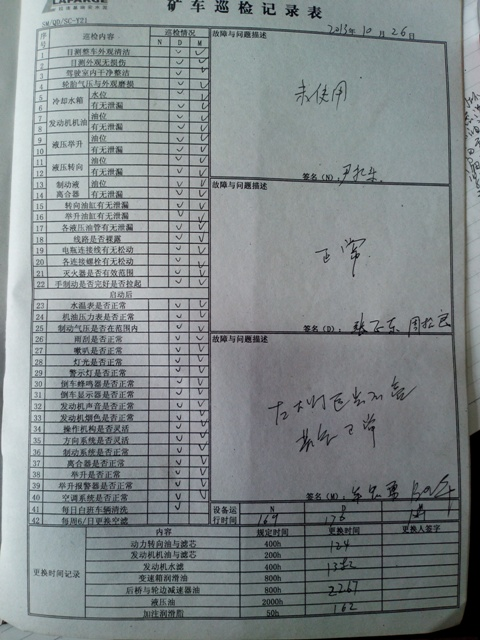 LAFARGE
矿车巡检记录表
SM/QD/SC-Y21
2013年10月26日
序号 巡检内容 巡检情况 故障与问题描述
N D M
1 目测整车外观清洁
2 目测外观无损伤
3 驾驶室内干净整洁
4 轮胎气压与外观磨损
5 冷却水箱 水位
6 有无泄漏
7 发动机机油 油位
8 有无泄漏
9 液压举升 油位
10 有无泄漏
11 液压转向 油位
12 有无泄漏
13 制动液 油位
14 离合器 有无泄漏
15 转向油缸有无泄漏
16 举升油缸有无泄漏
17 各液压油管有无泄漏
18 线路是否裸露
19 电瓶连接线有无松动
20 各连接螺栓有无松动
21 灭火器是否有效范围
22 手制动是否完好是否拉起
启动后
23 水温表是否正常
24 机油压力表是否正常
25 制动气压是否在范围内
26 雨刮是否正常
27 喇叭是否正常
28 灯光是否正常
29 警示灯是否正常
30 倒车蜂鸣器是否正常
31 倒车显示器是否正常
32 发动机声音是否正常
33 发动机烟色是否正常
34 操作机构是否灵活
35 方向系统是否灵活
36 制动系统是否正常
37 离合器是否正常
38 举升是否正常
39 举升报警器是否正常
40 空调系统是否正常
41 每日白班车辆清洗
42 每周6/日更换空滤
未使用
签名（N）：
故障与问题描述
正常
签名（D）：
故障与问题描述
其余正常
签名（M）：
设备运行时间 N D M
169 176
更换时间记录 内容 规定时间 更换时间 更换人签字
动力转向油与滤芯 400h 124
发动机机油与滤芯 200h
发动机水滤 400h
变速箱润滑油 800h
后桥与轮边减速器油 800h 2267
液压油 2000h
加注润滑脂 50h 162